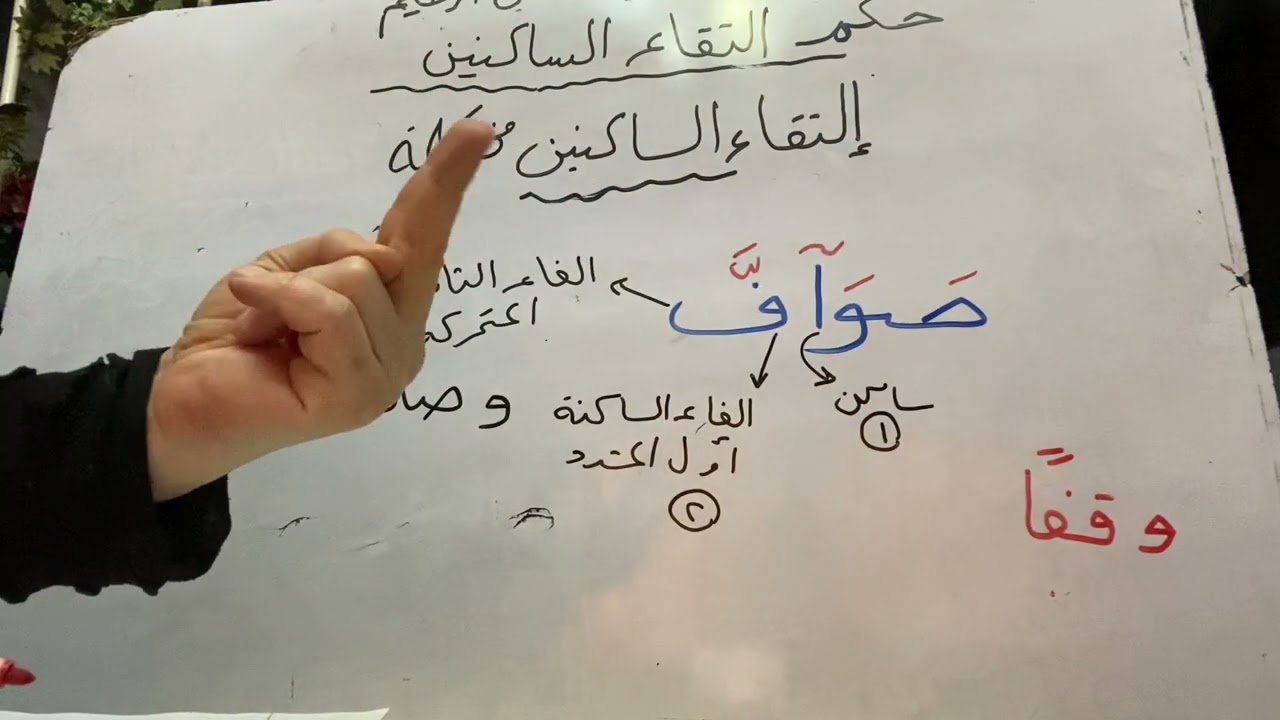 حكم التقاء الساكنين
إلتقاء الساكنين
صَوَآفَّ
الفاء
المتحركة
ساكن
١
الفاء الساكنة
أول المشدد
٢
وقفًا